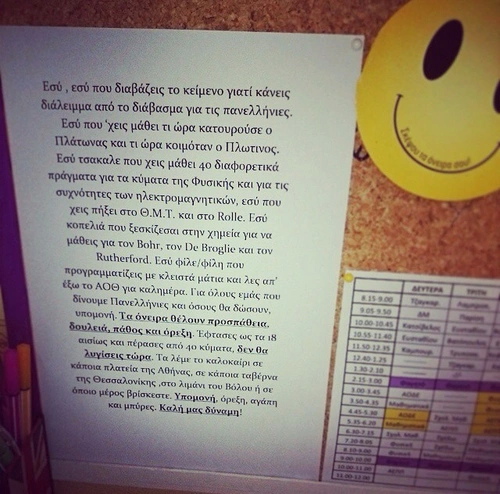 Εσύ , εσύ που διαβάζεις το κείμενο γιατί κάνεις
διάλειμμα από το διάβασμα για τις πανελλήνιες.
Εσύ που 'χεις μάθει τι ώρα κατουρούσε ο
Πλάτωνας και τι ώρα κοιμόταν ο Πλωτινος.
Εσύ τσακαλε που χεις μάθει 40 διαφορετικά
πράγματα για τα κύματα της Φυσικής και για τις
συχνότητες των ηλεκτρομαγνητικών, εσύ που
χεις πήξει στο Θ.Μ.Τ. και στο Rolle. Εσύ
κοπελιά που ξεσκίζεσαι στην χημεία για να
μάθεις για τον Bohr, τον De Broglie και τον
Rutherford. Εσύ φίλε/φίλη που
προγραμματίζεις με κλειστά μάτια και λες απ'
έξω το ΑΟΘ για καλημέρα. Για όλους εμάς που
δίνουμε Πανελλήνιες και όσους θα δώσουν,
υπομονή. Τα όνειρα θέλουν προσπάθεια,
δουλειά, πάθος και όρεξη. Έφτασες ως τα 18
αισίως και πέρασες από 40 κύματα, δεν θα
λυγίσεις τώρα. Τα λέμε το καλοκαίρι σε
κάποια πλατεία της Αθήνας, σε κάποια ταβέρνα
της Θεσσαλονίκης ,στο λιμάνι του Βόλου ή σε
όποιο μέρος βρίσκεστε. Υπομονή, όρεξη, αγάπη
και μπύρες. Καλή μας δύναμη!
Σκέψου τα όνειρα σου!
ΔΕΥΤΕΡΑ ΤΡΙΤΗ
8.15-9.00
9.05-9.50
10.00-10.45
10.55-11.40
11.50-12.35
12.40-1.25
1.30-2.10
2.15-3.00
3.00-3.45 ΑΟΔΕ
3.50-4.35 Μαθηματικά
4.45-5.30 ΑΟΔΕ
5.35-6.20 Μαθηματικά
6.30-7.15
7.20-8.00
8.10-9.00
9.00-10.00
10.00-11.00
11.00-12.00